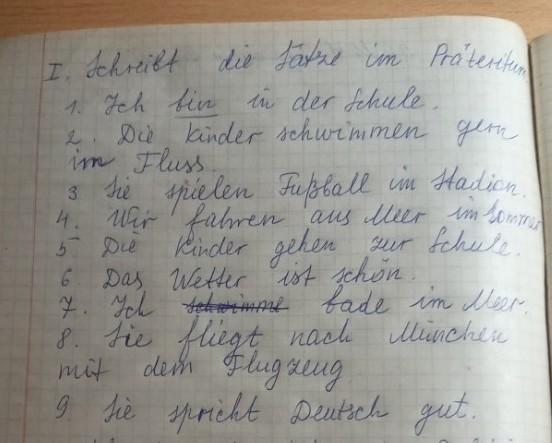 I. Schreibt die Sätze im Präteritum
1. Ich bin in der Schule.
2. Die Kinder schwimmen gern
im Fluss.
3 Sie spielen Fußball im Stadion.
4. Wir fahren ans Meer im Sommer
5 Die Kinder gehen zur Schule.
6 Das Wetter ist schön.
7. Ich schwimme bade im Meer.
8. Sie fliegt nach München
mit dem Flugzeug
9 Sie spricht Deutsch gut.